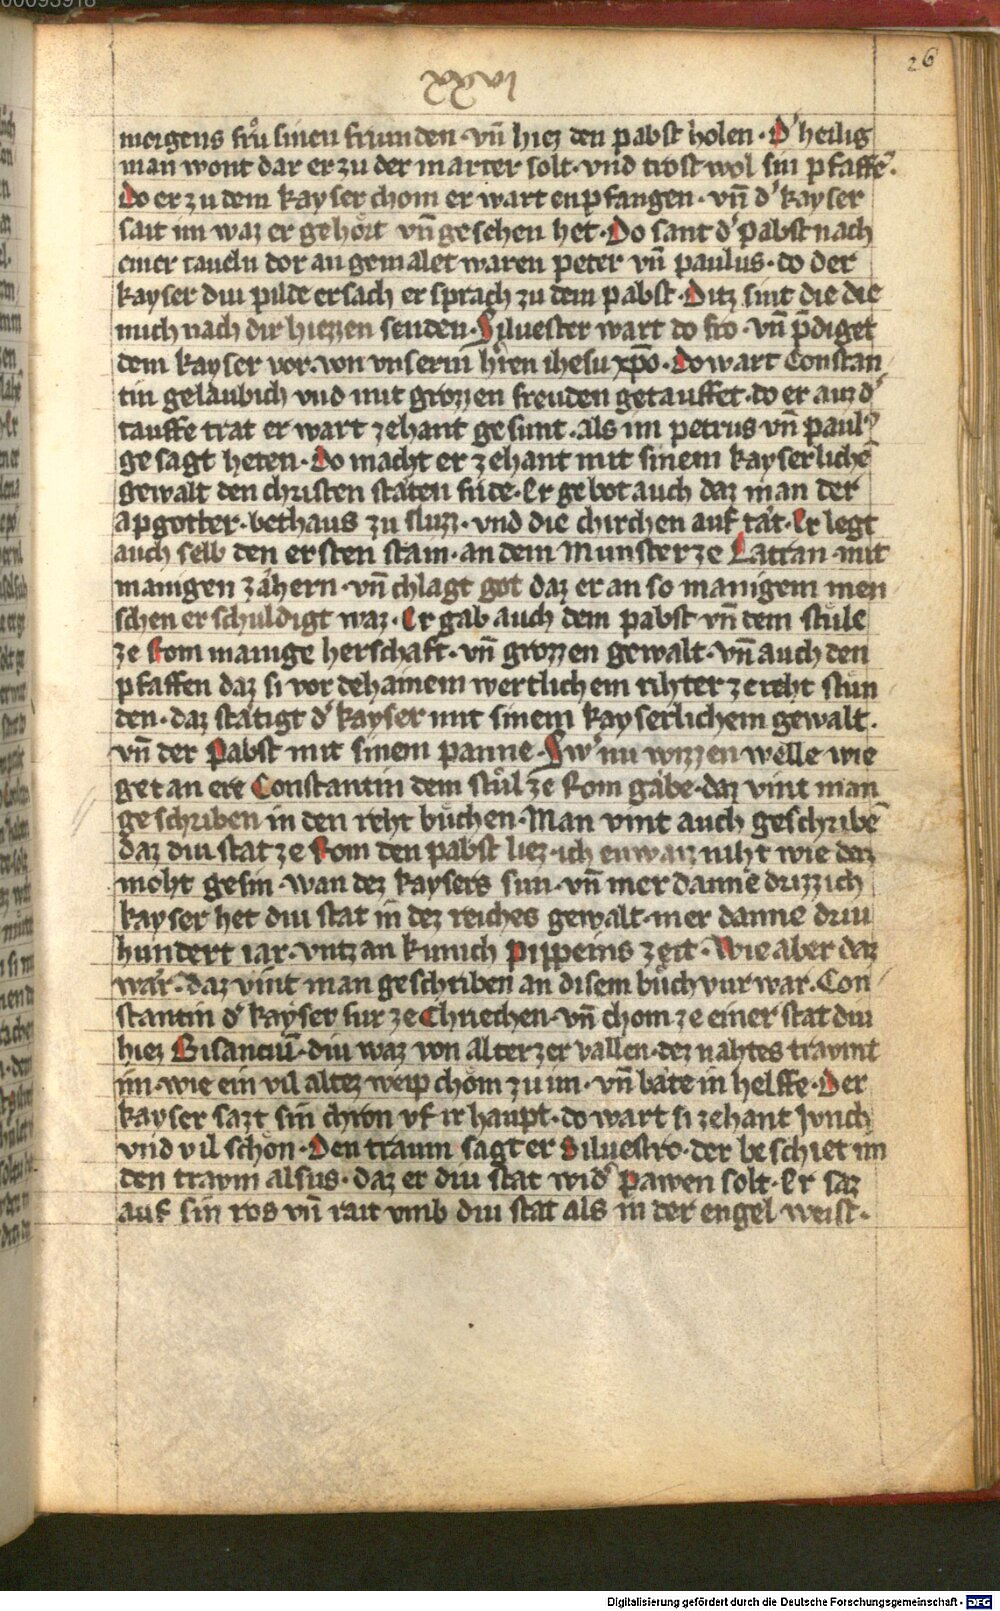 00093918
26
xxvi
morgens frů sinen frunden · vn̄ hiez den pabst holen · D' heilig
man wont dar er zu der marter solt · vnd trost wol sin pfaffē ·
Do er zu dem kayser chom er wart enpfangen · vn̄ d' kayser
sait im waz er gehört vn̄ geschen het · Do sant d' pabst nach
einer taueln dor an gemalet waren peter vn̄ paulus · do der
kayser diu pilde ersach er sprach zu dem pabst · Ditz sint die die
mich nach dir hiezzen senden · Siluester wart do fro · vn̄ p̄diget
dem kayser vor · von vnserm h'ren ihesu xp̄o · Do wart Constan
tin gelaubich vnd mit grozzen freuden getauffet · do er auz d'
tauffe trat er wart zehant gesunt · als im petrus vn̄ paul9
gesagt heten · Do macht er zehant mit sinem kayserlichē
gewalt den christen stäten fride · Er gebot auch daz man der
apgotter · bethaus zu sluzz · vnd die chirchen auf tät · Er legt
auch selb den ersten stain · an dem Munster ze Latran · mit
manigen zähern · vn̄ chlagt got daz er an so manigem men
schen er schuldigt waz · Er gab auch dem pabst vn̄ dem stůle
ze Rom manige herschaft · vn̄ grozzen gewalt · vn̄ auch den
pfaffen daz si vor dehainem wertlichem rihter ze reht stůn
den · daz stätigt d' kayser mit sinem kayserlichem gewalt ·
vn̄ der Pabst mit sinem panne · Sw' nu wizzen welle wie
getan ere Constantin dem stůl ze Rom gäbe · daz vint man
geschriben in den reht bůchen · Man vint auch geschribē
daz diu stat ze Rom den pabst liez · ich enwaiz niht wie daz
moht gesin · wan dez kaysers sun · vn̄ mer danne drizzich
kayser het diu stat in dez reiches gewalt · mer danne driu
hundert iar · vntz an kunich Pippeins zeit · Wie aber daz
wär · daz vint man geschriben an disem bůch vur war · Con
stantin d' kayser fur ze Chriechen · vn̄ chom ze einer stat diu
hiez Bisanciū · diu waz von alter zer vallen · dez nahtes traumt
im · wie ein vil altez weip chöm zu im · vn̄ bäte in helffe · Der
kayser sazt sin chron vf ir haupt · do wart si zehant Junch
vnd vil schön · Den traum sagt er Siluestro · der beschiet im
den traum alsus · daz er diu stat wid' pawen solt · Er saz
auf sin ros vn̄ rait vmb diu stat als in der engel weist ·
Digitalisierung gefördert durch die Deutsche Forschungsgemeinschaft - DFG